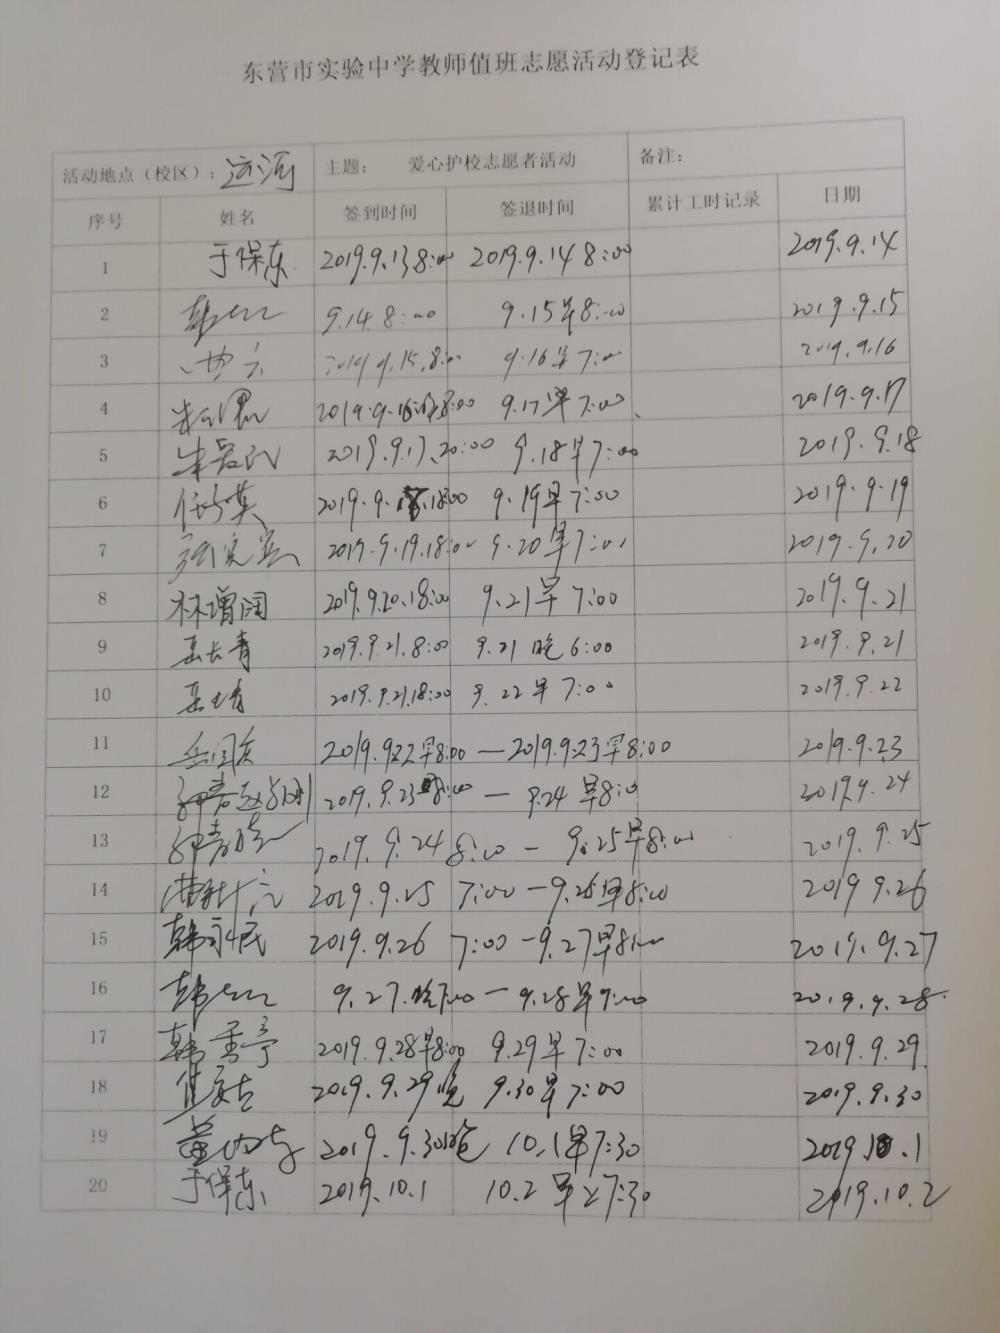 东营市实验中学教师值班志愿活动登记表
活动地点（校区）：运河 主题： 爱心护校志愿者活动 备注：
序号 姓名 签到时间 签退时间 累计工时记录 日期
1 于保东 2019.9.13 8:00 2019.9.14 8:00 2019.9.14
2 韩 9.14 8:00 9.15早8:00 2019.9.15
3 2019.9.15.8:00 9.16早7:00 2019.9.16
4 9.17早7:00 2019.9.17
5 2019.9.17.20:00 9.18早7:00 2019.9.18
6 2019.9. 18:00 9.19早7:00 2019.9.19
7 2019.9.19.18:00 9.20早7:00 2019.9.20
8 林增阔 2019.9.20.18:00 9.21早7:00 2019.9.21
9 岳长青 2019.9.21.8:00 9.21晚6:00 2019.9.21
10 2019.9.21.18:00 9.22早7:00 2019.9.22
11 2019.9.22早8:00—2019.9.23早8:00 2019.9.23
12 2019.9.23 8:00—9.24早8:00 2019.9.24
13 2019.9.24 8:00-9.25早8:00 2019.9.25
14 2019.9.25 7:00-9.26早8:00 2019 9.26
15 韩永民 2019.9.26 7:00-9.27早8:00 2019.9.27
16 韩 9.27.晚7:00—9.28早7:00 2019.9.28
17 韩秀亭 2019.9.28早8:00 9.29早7:00 2019.9.29
18 2019.9.29晚 9.30早7:00 2019.9.30
19 2019.9.30晚 10.1早7:30 2019.10.1
20 于保东 2019.10.1 10.2早7:30 2019.10.2